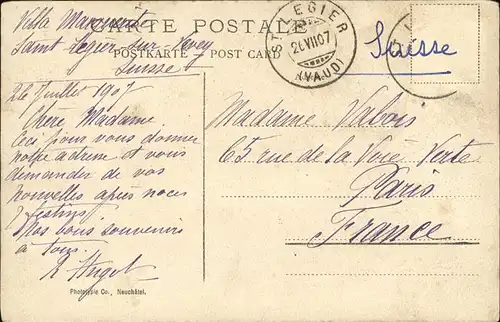 Villa Marguerite
Saint Légier sur Vevey
Suisse
CARTE POSTALE
POSTKARTE POST CARD
ST LEGIER
26 VII 07
(VAUD)
Suisse
26 Juillet 1907
Chère Madame.
Ceci pour vous donner
notre adresse et vous
demander de vos
nouvelles après noces
& festins!
Nos bons souvenirs
à tous.
Phototypie Co., Neuchâtel.
Madame Valois
65 rue de la Voie Verte
Paris
France